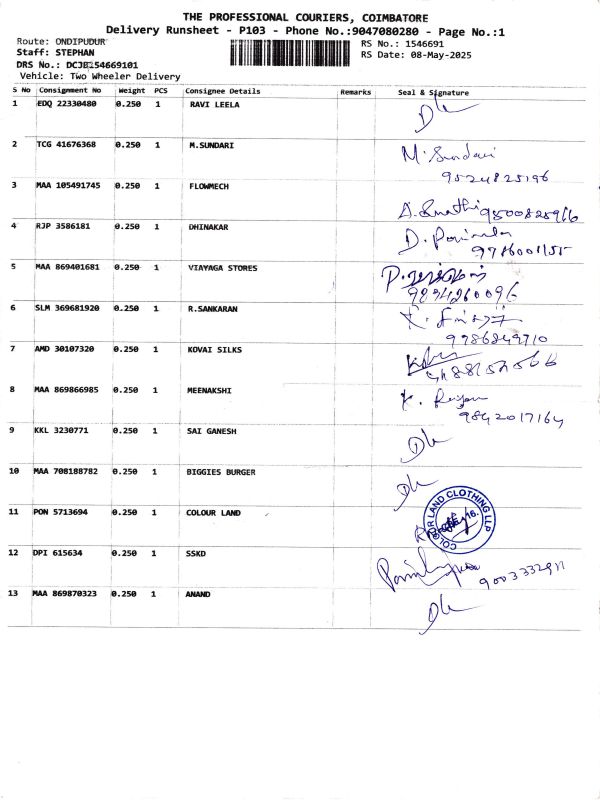 THE PROFESSIONAL COURIERS, COIMBATORE
Delivery Runsheet - P103 - Phone No.:9047080280 - Page No.:1
Route: ONDIPUDUR RS No.: 1546691
Staff: STEPHAN RS Date: 08-May-2025
DRS No.: DCJB154669101
Vehicle: Two Wheeler Delivery
S No Consignment No Weight PCS Consignee Details Remarks Seal & Signature
1 EDQ 22330480 0.250 1 RAVI LEELA
2 TCG 41676368 0.250 1 M.SUNDARI M. Sundari
9524825196
3 MAA 105491745 0.250 1 FLOWMECH
4 RJP 3586181 0.250 1 DHINAKAR
5 MAA 869401681 0.250 1 VIAYAGA STORES
6 SLM 369681920 0.250 1 R.SANKARAN
7 AMD 30107320 0.250 1 KOVAI SILKS
8 MAA 869866985 0.250 1 MEENAKSHI
9842017164
9 KKL 3230771 0.250 1 SAI GANESH
10 MAA 708188782 0.250 1 BIGGIES BURGER
11 PON 5713694 0.250 1 COLOUR LAND COLOUR LAND CLOTHING LLP
12 DPI 615634 0.250 1 SSKD
13 MAA 869870323 0.250 1 ANAND